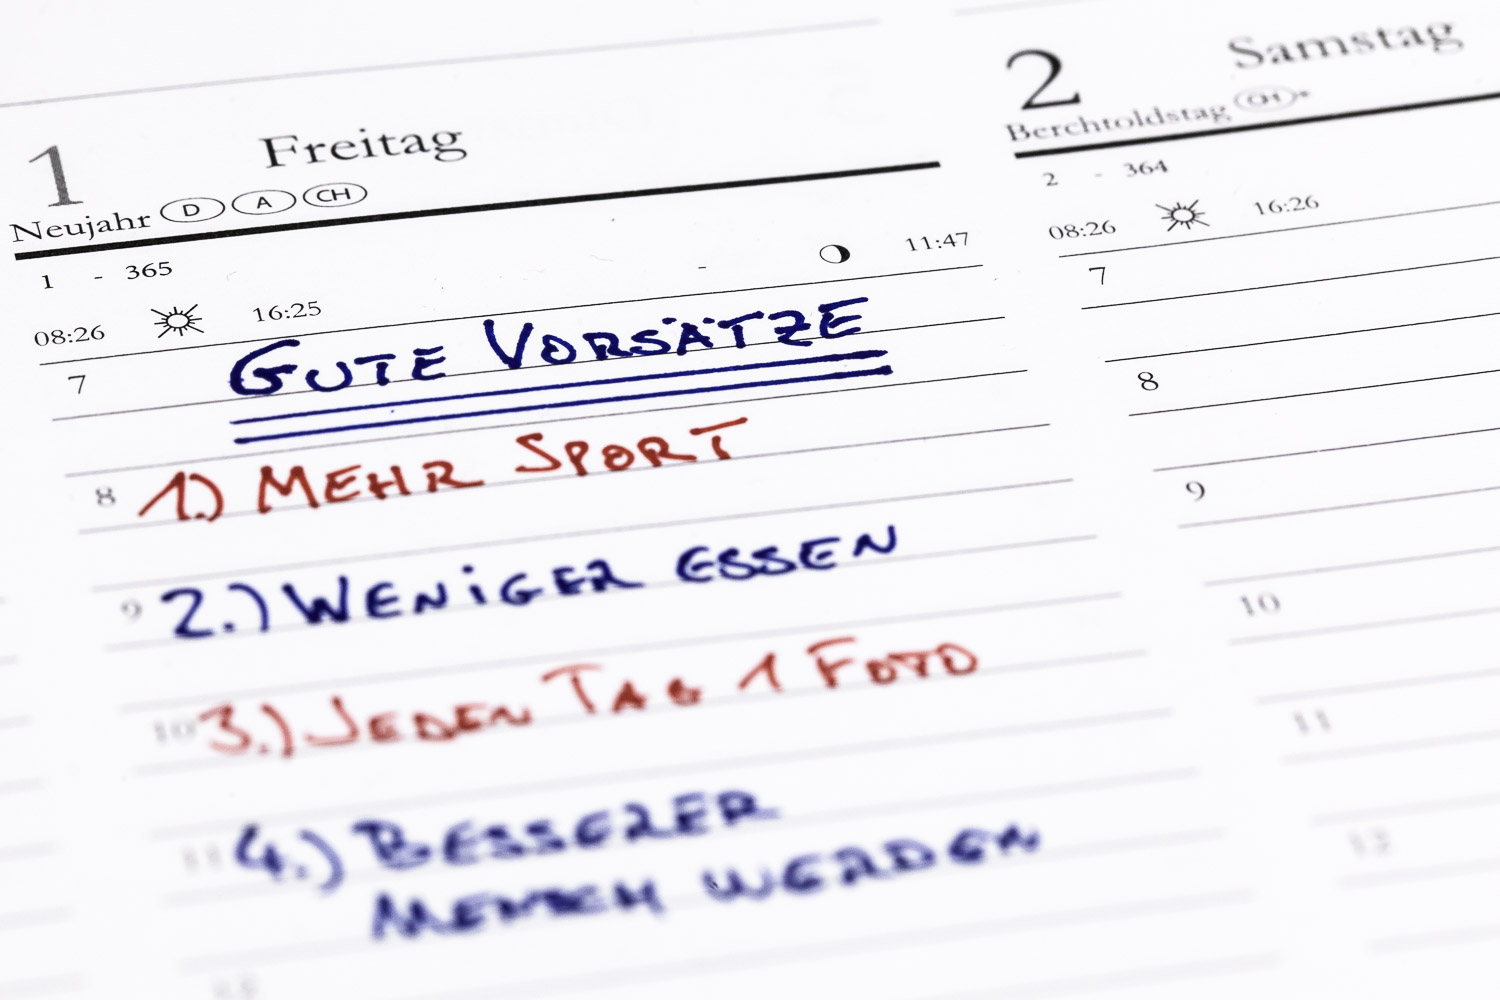 1 Freitag
Neujahr D A CH
1 - 365
- 11:47
08:26 16:25
7 GUTE VORSÄTZE
8 1.) MEHR SPORT
9 2.) WENIGER ESSEN
10 3.) JEDEN TAG 1 FOTO
11 4.) BESSERER
MENSCH WERDEN
2 Samstag
Berchtoldstag CH*
2 - 364
08:26 16:26
7
8
9
10
11
12